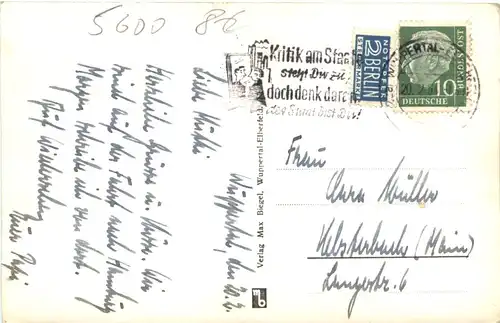 5600 8€
Kritik am Staat
steht Dir zu,
doch denk daran:
der Staat bist Du!
NOTOPFER
2 BERLIN
STEUERMARKE
WUPPERTAL-
DEUTSCHE BUNDESPOST
10
DEUTSCHE
Wuppertal, den
Liebe Mutti
Herzliche Grüsse u. Küsse. Wir
sind auf der Fahrt nach Hamburg
Morgen schreibe ich von dort.
Auf Wiedersehen
Euer Papi
Verlag Max Biegel, Wuppertal-Elberfeld
mb
Frau
Anna Müller
Kelsterbach (Main)
Langerstr. 6